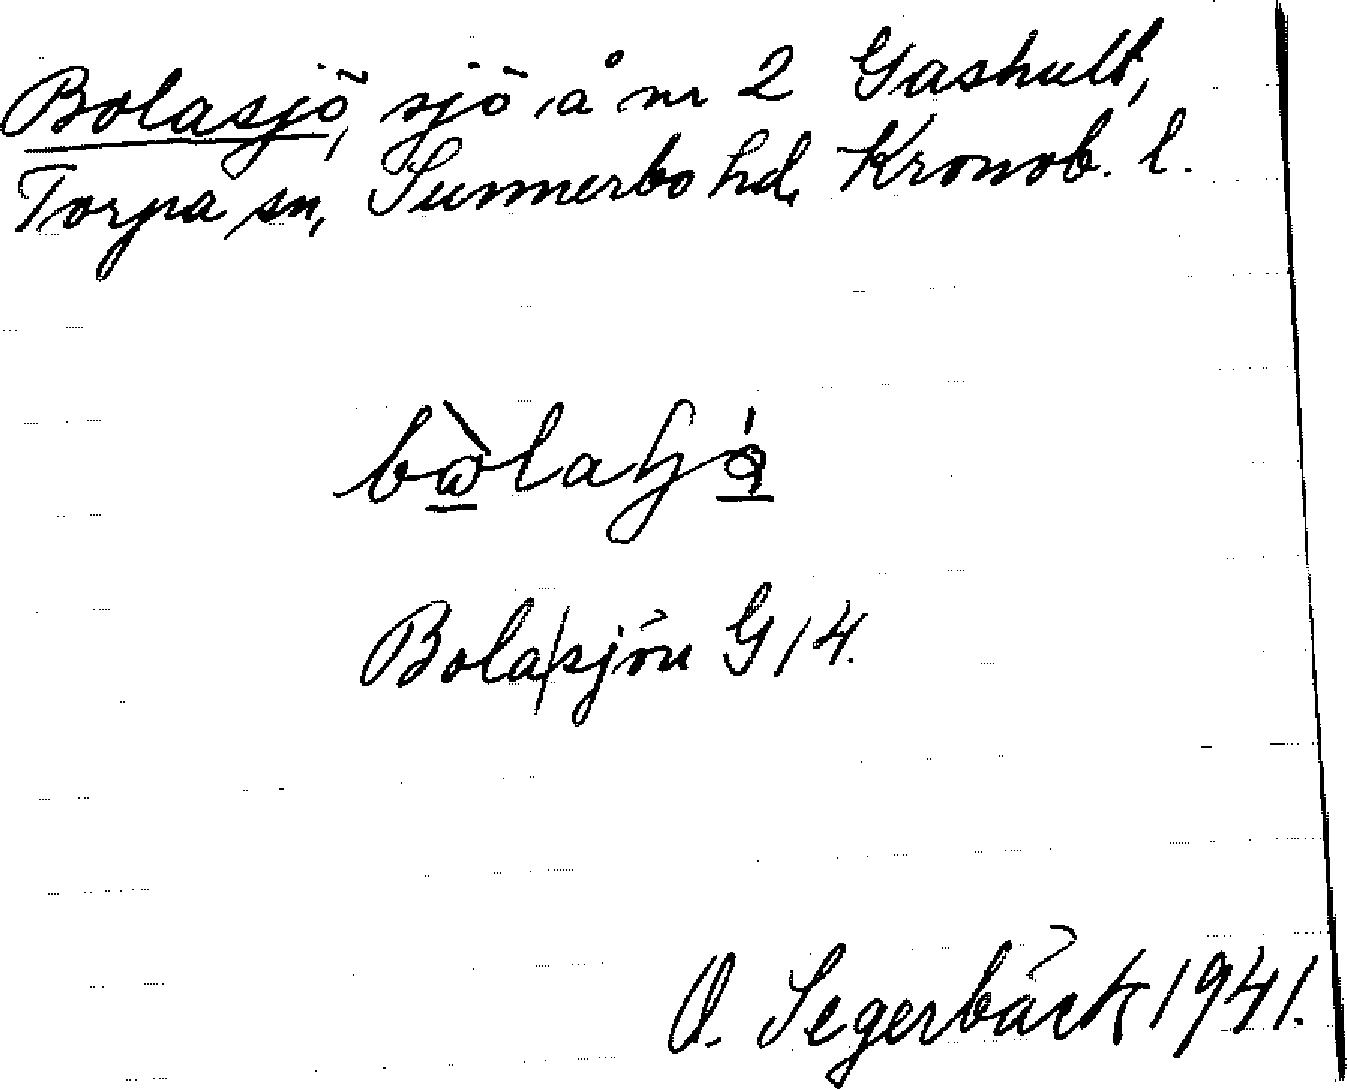 Bolasjö, sjö å nr 2 Gashult,
Torpa sn, Sunnerbo hd, Kronob. l.
Bola|sjön G 14.
O. Segerbäck 1941.